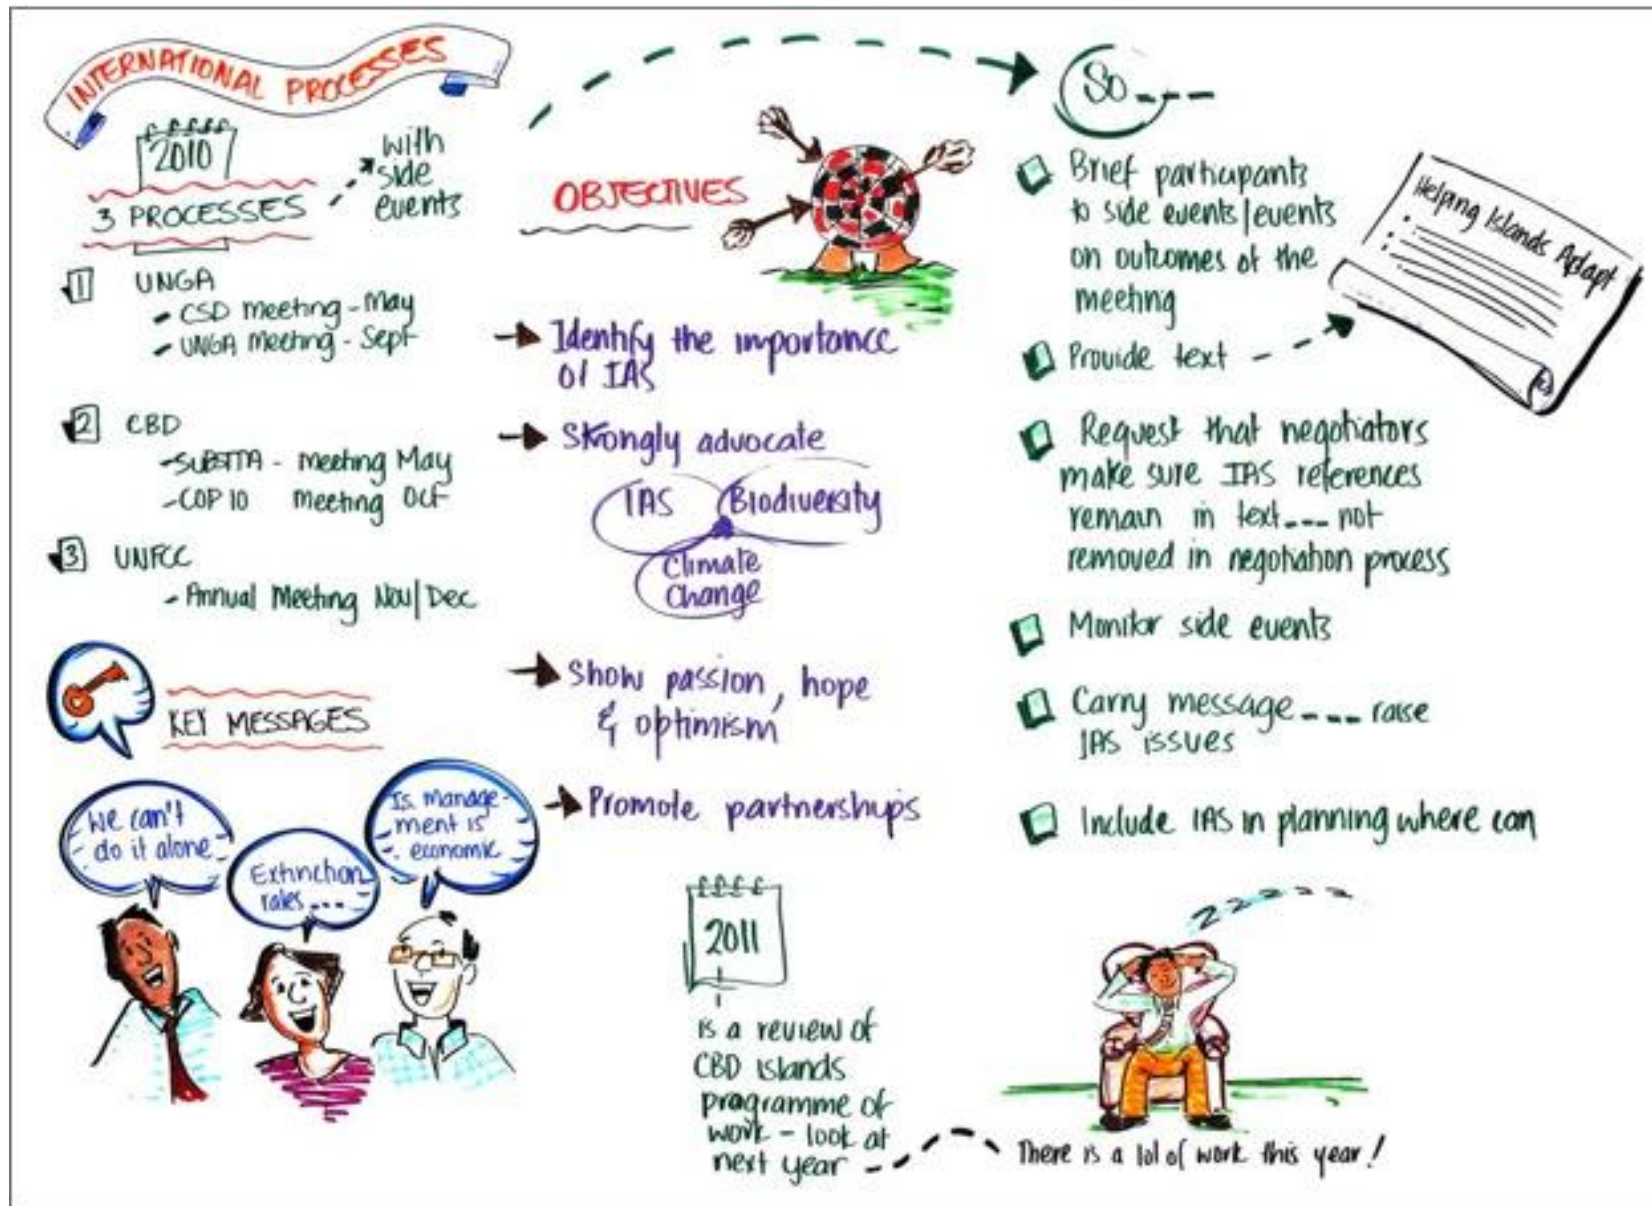 INTERNATIONAL PROCESSES
2010
3 PROCESSES
with
side
events
1 UNGA
- CSD meeting - May
- UNGA meeting - Sept
2 CBD
- SUBSTTA - meeting May
- COP 10 meeting Oct
3 UNFCC
- Annual Meeting Nov/Dec
KEY MESSAGES
We can't
do it alone
Extinction
rates ...
Is. manage-
ment is
economic
OBJECTIVES
Identify the importance
of IAS
Strongly advocate
IAS Biodiversity
Climate
Change
Show passion, hope
& optimism
Promote partnerships
2011
is a review of
CBD islands
programme of
work - look at
next year
So ---
Brief participants
to side events/events
on outcomes of the
meeting
Provide text
Helping Islands Adapt
Request that negotiators
make sure IAS references
remain in text --- not
removed in negotiation process
Monitor side events
Carry message --- raise
IAS issues
Include IAS in planning where can
zzzzzz
There is a lot of work this year!